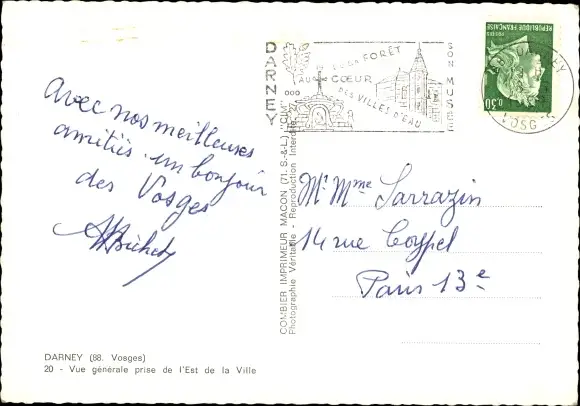 Avec nos meilleures
amitiés un bonjour
des Vosges
DARNEY
(88. Vosges)
20 - Vue générale prise de l'Est de la Ville
COMBIER IMPRIMEUR MACON (71. S.-&-L.) "CIM"
Photographie Véritable - Reproduction Interdite
DARNEY
SA FORÊT
AU CŒUR
DES VILLES D'EAU
SON MUSÉE
REPUBLIQUE FRANÇAISE
POSTES
0,30
DARNEY
VOSGES
Mr Mme Sarrazin
14 rue Coypel
Paris 13e